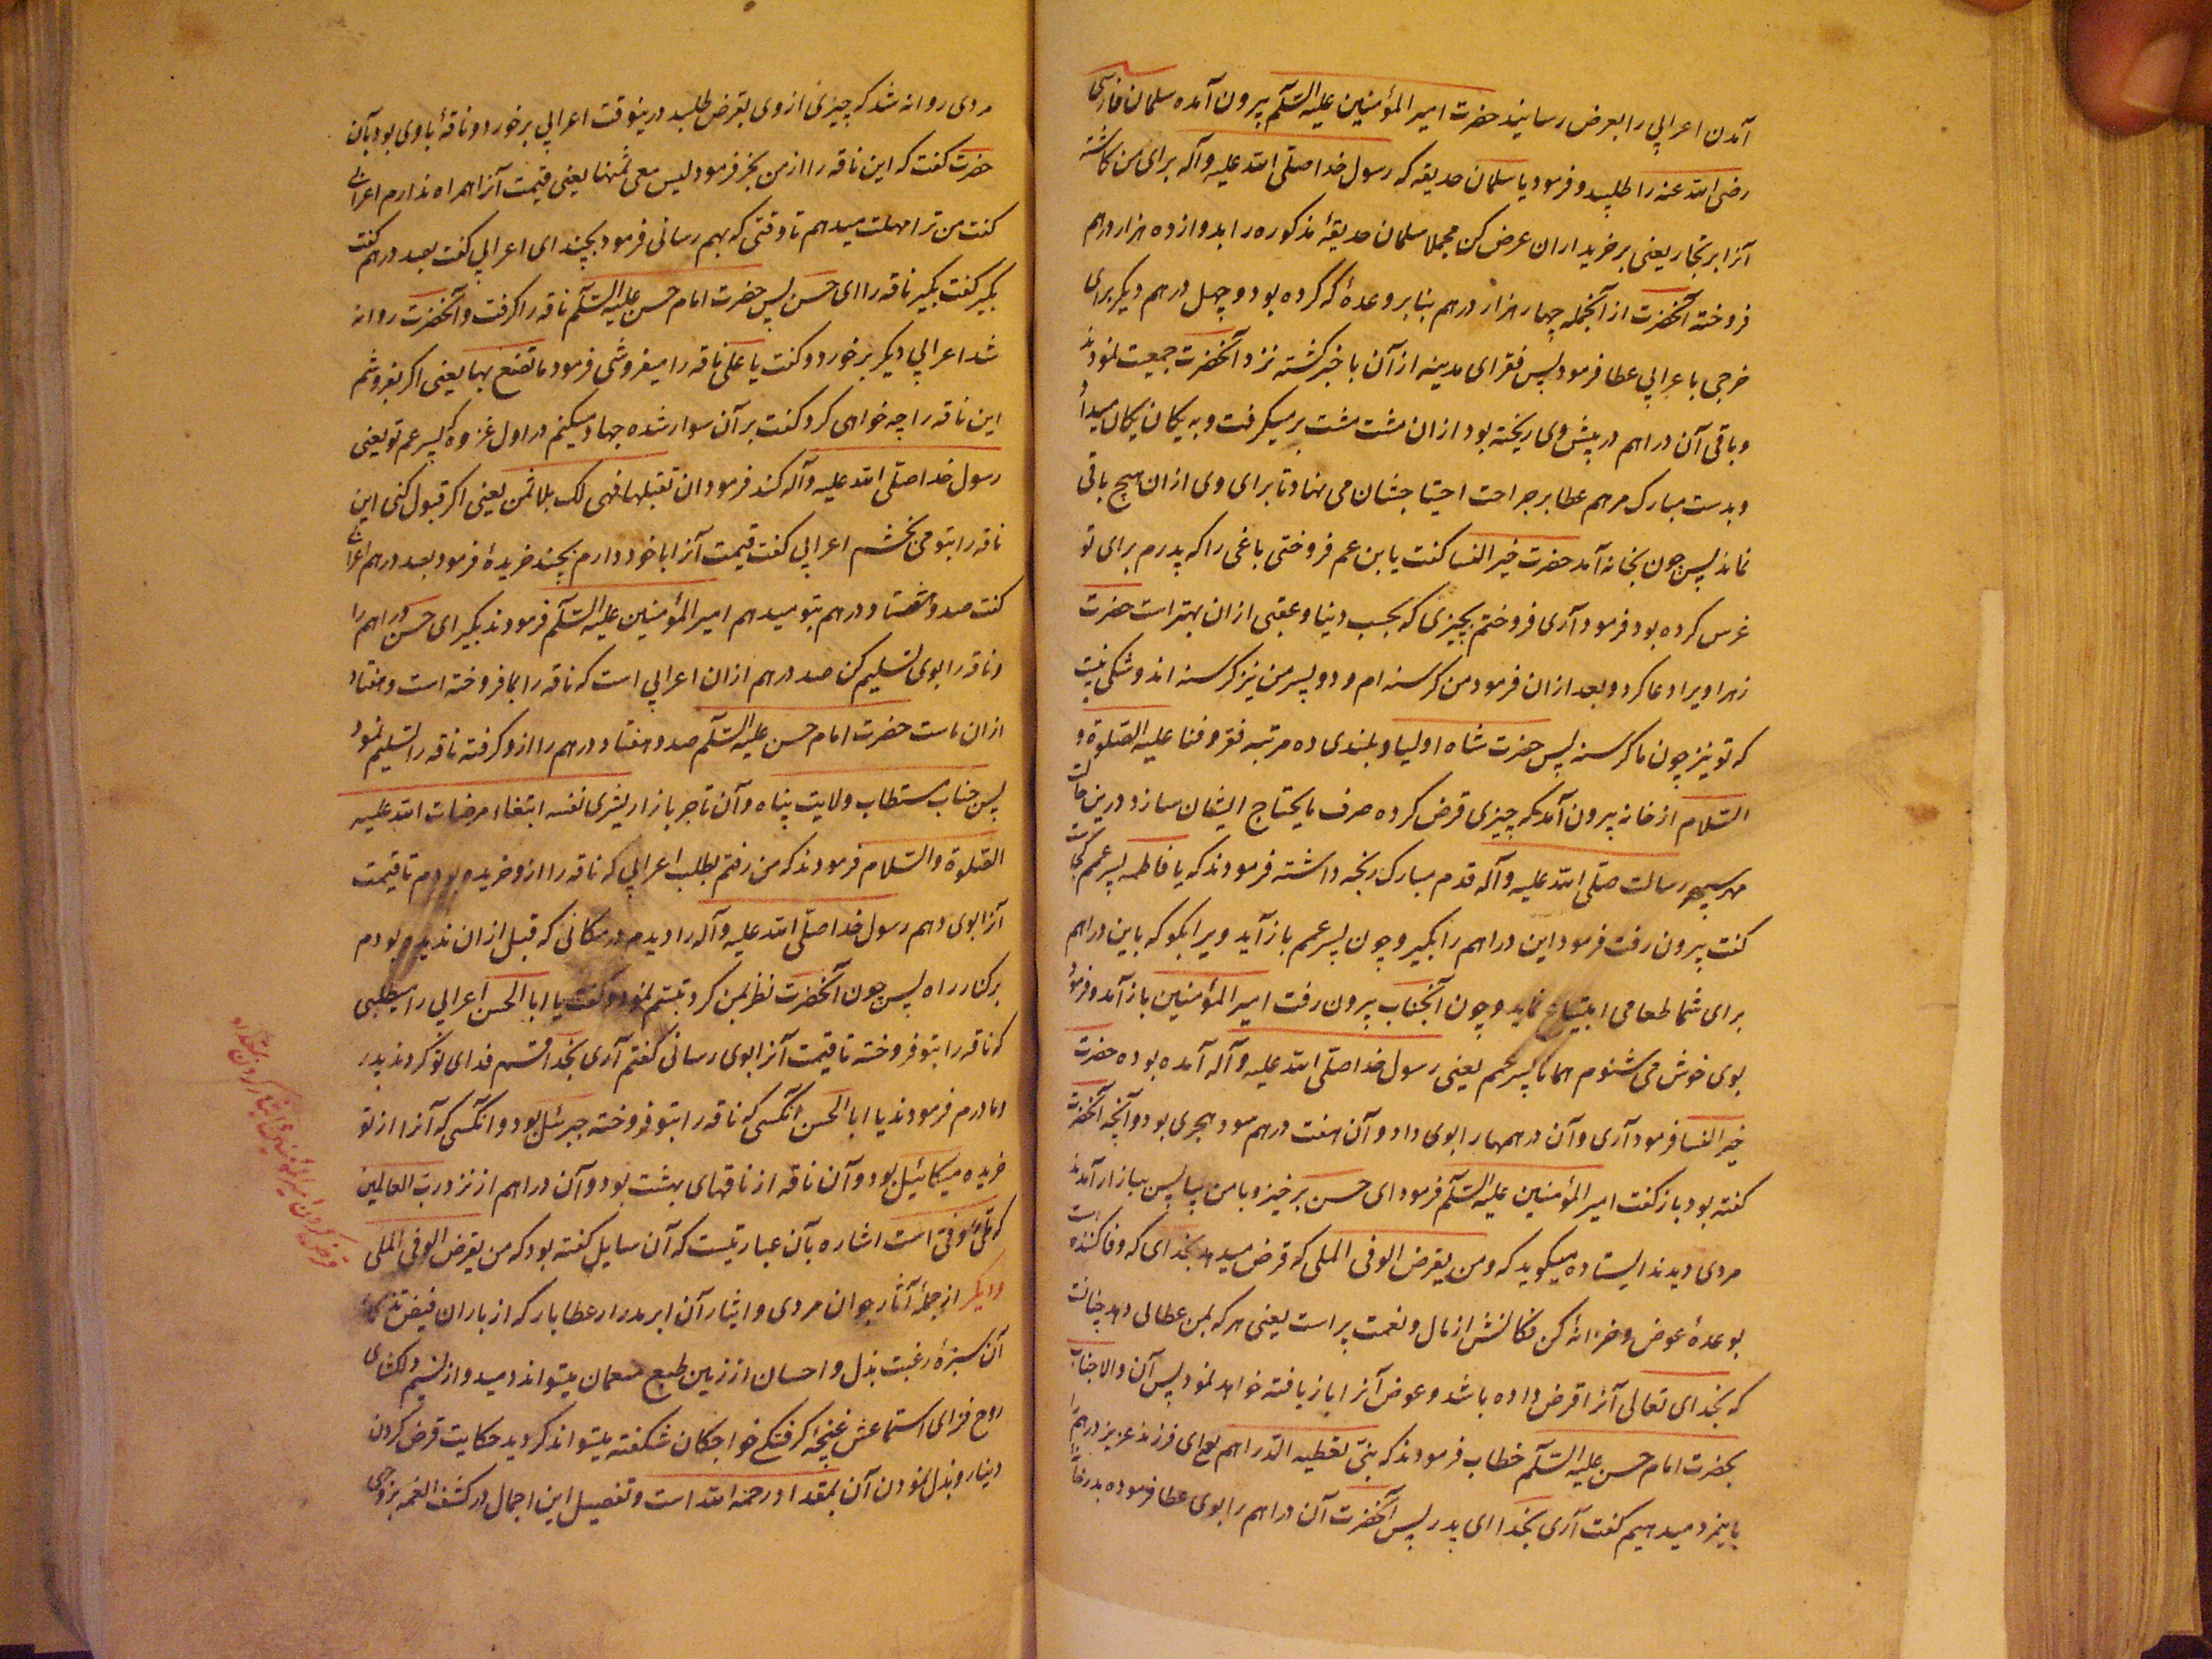 آمدن اعرابی را بعرض رسانید حضرت امیر المؤمنین علیه السّلم بیرون آمده سلمان فارسی
رضی الله عنه را طلبید و فرمود یا سلمان حدیقه که رسول خدا صلّی الله علیه وآله برای من کاشته
آنرا بر تجار یعنی بر خریداران عرض کن مجملا سلمان حدیقهٔ مذکوره را بدوازده هزار درهم
فروخته آنحضرت از آنجمله چهار هزار درهم بنا بر وعدهٔ که کرده بود و چهل درهم دیگر برای
خرجی باعرابی عطا فرمود پس فقرای مدینه از آن با خبر گشته نزد آنحضرت جمعیت نمودند
و باقی آن دراهم در پیش وی ریخته بود ازان مشت مشت بر میگرفت و به یکان یکان میداد
و بدست مبارک مرهم عطا بر جراحت احتیاجشان می نهاد تا برای وی ازان هیچ باقی
نماند پس چون بخانه آمد حضرت خیر النسا گفت یا بن عم فروختی باغی را که پدرم برای تو
غرس کرده بود فرمود آری فروختم بچیزی که بحسب دنیا و عقبی ازان بهتر است حضرت
زهرا ویرا دعا کرد و بعد ازان فرمود من گرسنه ام و دو پسر من نیز گرسنه اند و شکی نیست
که تو نیز چون ما گرسنه پس حضرت شاه اولیا و بلندی ده مرتبه فقر و فنا علیه الصّلوة و
السّلام از خانه بیرون آمد که چیزی قرض کرده صرف مایحتاج ایشان سازد درین حالت
مهر سپهر رسالت صلّی الله علیه وآله قدم مبارک رنجه داشته فرمودند که یا فاطمه پسر عمم کجاست
گفت بیرون رفت فرمود این دراهم را بگیر و چون پسر عمم باز آید ویرا بگو که باین دراهم
برای شما طعامی ابتیاع نماید و چون آنجناب بیرون رفت امیر المؤمنین باز آمد و فرمود
بوی خوش می شنوم همانا پسر عمم یعنی رسول خدا صلّی الله علیه وآله آمده بوده حضرت
خیر النسا فرمود آری و آن درهمها را بوی داد و آن هفت درهم سود هجری بود و آنچه آنحضرت
گفته بود باز گفت امیر المؤمنین علیه السّلم فرمود ای حسن بر خیز و با من بیا پس ببازار آمدند
مردی دیدند ایستاده میگوید که و من یقرض الوفی الملی که قرض میدهد بخدای که وفا کننده است
بوعدهٔ عوض و خزانهٔ کن فکانش از مال و نعمت پر است یعنی هر که بمن عطائی دهد چنانست
که بخدای تعالی آنرا قرض داده باشد و عوض آنرا باز یافته خواهد نمود پس آن والا جناب
بحضرت امام حسن علیه السّلم خطاب فرمودند که یا بنیّ نعطیه الدّراهم یعنی ای فرزند عزیز درهم را
باینمرد میدهیم گفت آری بخدا ای پدر پس آنحضرت آن دراهم را بوی عطا فرموده بدر خانهٔ
مردی روانه شد که چیزی ازوی بقرض طلبد درینوقت اعرابی برخورد و ناقهٔ باوی بود بآن
حضرت گفت که این ناقه را از من بخر فرمود لیس معی ثمنها یعنی قیمت آنرا همراه ندارم اعرابی
گفت من ترا مهلت میدهم تا وقتی که بهم رسانی فرمود بچند ای اعرابی گفت بصد درهم گفت
بگیر گفت بگیر ناقه را ای حسن پس حضرت امام حسن علیه السّلم ناقه را گرفت و آنحضرت روانه
شد اعرابی دیگر برخورد و گفت یا علی ناقه را میفروشی فرمود ما تصنع بها یعنی اگر بفروشم
این ناقه را چه خواهی کرد گفت بر آن سوار شده جهاد میکنم در اول غزوهٔ که پسر عم تو یعنی
رسول خدا صلّی الله علیه وآله کند فرمود ان تقبلها فهی لک بلا ثمن یعنی اگر قبول کنی این
ناقه را بتو می بخشم اعرابی گفت قیمت آنرا با خود دارم بچند خریدهٔ فرمود بصد درهم اعرابی
گفت صد و هفتاد درهم بتو میدهم امیر المؤمنین علیه السّلم فرمودند بگیر ای حسن دراهم را
و ناقه را بوی تسلیم کن صد درهم ازان اعرابی است که ناقه را بما فروخته است و هفتاد
ازان ماست حضرت امام حسن علیه السّلم صد و هفتاد درهم را ازو گرفته ناقه را تسلیم نمود
پس جناب مستطاب ولایت پناه و آن تاجر بازار یشری نفسه ابتغاء مرضات الله علیه
الصّلوة والسّلام فرمودند که من رفتم بطلب اعرابی که ناقه را ازو خریده بودم تا قیمت
آنرا بوی دهم رسول خدا صلّی الله علیه وآله را دیدم در مکانی که قبل ازان ندیده بودم
بر کنار راه پس چون آنحضرت نظر بمن کرد تبسّم نمود و گفت یا ابا الحسن اعرابی را میطلبی
که ناقه را بتو فروخته تا قیمت آنرا بوی رسانی گفتم آری بخدا قسم فدای تو گردند پدر
و مادرم فرمودند یا ابا الحسن آنکسی که ناقه را بتو فروخته جبرئیل بود و آنکسی که آنرا از تو
خریده میکائیل بود و آن ناقه از ناقهای بهشت بود و آن دراهم از نزد ربّ العالمین
که ملی و وفی است اشاره بآن عبارتیست که آن سایل گفته بود که من یقرض الوفی الملی
و دیگر از جملهٔ آثار جوان مردی و ایثار آن ابر مدرار عطا بار که از باران فیض
آن سبزهٔ رغبت بذل و احسان از زمین طبع منعمان میتواند دمید و از نسیم دلگشای
روح فزای استماعش غنچهٔ گرفتگی خواجگان شگفته میتواند گردید حکایت قرض کردن
دینار و بذل نمودن آن بمقداد رحمه الله است و تفصیل این اجمال در کشف الغمه بروجهی
قرض کردن امیر المؤمنین ایثار کردن بمقداد